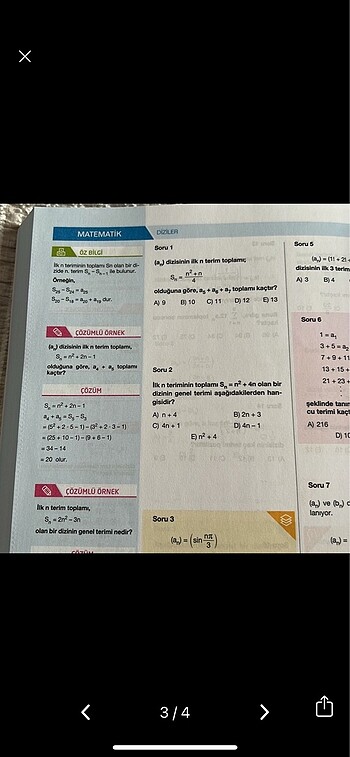 MATEMATİK
DİZİLER
ÖZ BİLGİ
İlk n teriminin toplamı Sn olan bir dizide n. terim Sₙ – Sₙ₋₁ ile bulunur.
Örneğin,
S₂₅ – S₂₄ = a₂₅
S₂₀ – S₁₈ = a₂₀ + a₁₉ dur.
ÇÖZÜMLÜ ÖRNEK
(aₙ) dizisinin ilk n terim toplamı,
Sₙ = n² + 2n – 1
olduğuna göre, a₄ + a₅ toplamı kaçtır?
ÇÖZÜM
Sₙ = n² + 2n – 1
a₄ + a₅ = S₅ – S₃
= (5² + 2 · 5 – 1) – (3² + 2 · 3 – 1)
= (25 + 10 – 1) – (9 + 6 – 1)
= 34 – 14
= 20 olur.
ÇÖZÜMLÜ ÖRNEK
İlk n terim toplamı,
Sₙ = 2n² – 3n
olan bir dizinin genel terimi nedir?
ÇÖZÜM
Soru 1
(aₙ) dizisinin ilk n terim toplamı;
Sₙ = (n² + n)/4
olduğuna göre, a₅ + a₆ + a₇ toplamı kaçtır?
A) 9 B) 10 C) 11 D) 12 E) 13
Soru 2
İlk n teriminin toplamı Sₙ = n² + 4n olan bir
dizinin genel terimi aşağıdakilerden han-
gisidir?
A) n + 4 B) 2n + 3
C) 4n + 1 D) 4n – 1
E) n² + 4
Soru 3
(aₙ) = (sin nπ/3)
Soru 5
(aₙ) = (1! + 2! +
dizisinin ilk 3 terim
A) 3 B) 4
Soru 6
1 = a₁
3 + 5 = a₂
7 + 9 + 11
13 + 15 +
21 + 23 +
şeklinde tanım
cu terimi kaçt
A) 216
D) 10
Soru 7
(aₙ) ve (bₙ) d
lanıyor.
(aₙ) =
3 / 4